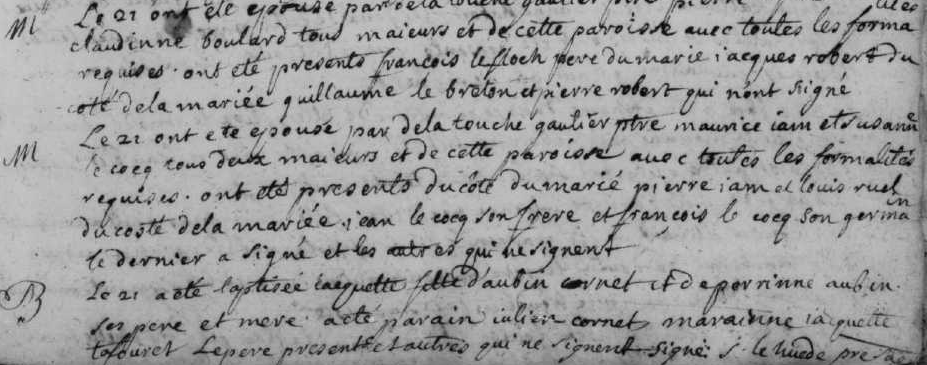 Le 21 ont eté epousé par dela touche gaulier ptre pierre
M claudinne boulard tous maieurs et de cette paroisse avec toutes les forma
requises. ont eté presents francois lefloch pere du marié iacques robert du
coté dela mariée guillaume le breton et pierre robert qui nont signé
Le 21 ont eté epousé par dela touche gaulier ptre maurice iam et susanne
M le cocq tous deux maieurs et de cette paroisse avec toutes les formalités
requises. ont eté presents du côté du marié pierre iam et louis ruel
du costé dela mariée iean le cocq son frere et francois le cocq son germain
le dernier a signé et les autres qui ne signent
B Le 21 a eté baptisée iacquette fille d'aubin cornet et de perrinne aubin.
ses pere et mere. a eté parain iulien cornet marainne iacquette
le pere present et autres qui ne signent signé: S. le huede